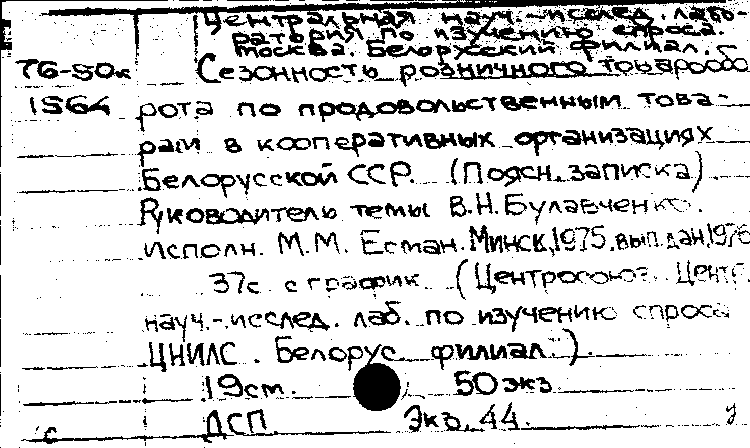 Центральная науч.-исслед. лабо-
ратория по изучению спроса.
Москва. Белорусский филиал.
76-90к Сезонность розничного товарообо
1564 рота по продовольственным това-
рам в кооперативных организациях
Белорусской ССР. (Поясн. записка).
Руководитель темы В.Н. Булавченко.
Исполн. М.М. Есман. Минск, 1975, вып. дан. 1976
37с. с график. (Центросоюз. Центр.
науч.-исслед. лаб. по изучению спроса
ЦНИЛС. Белорус. филиал.).
19см. 50экз.
ДСП. Экз. 44.
с у